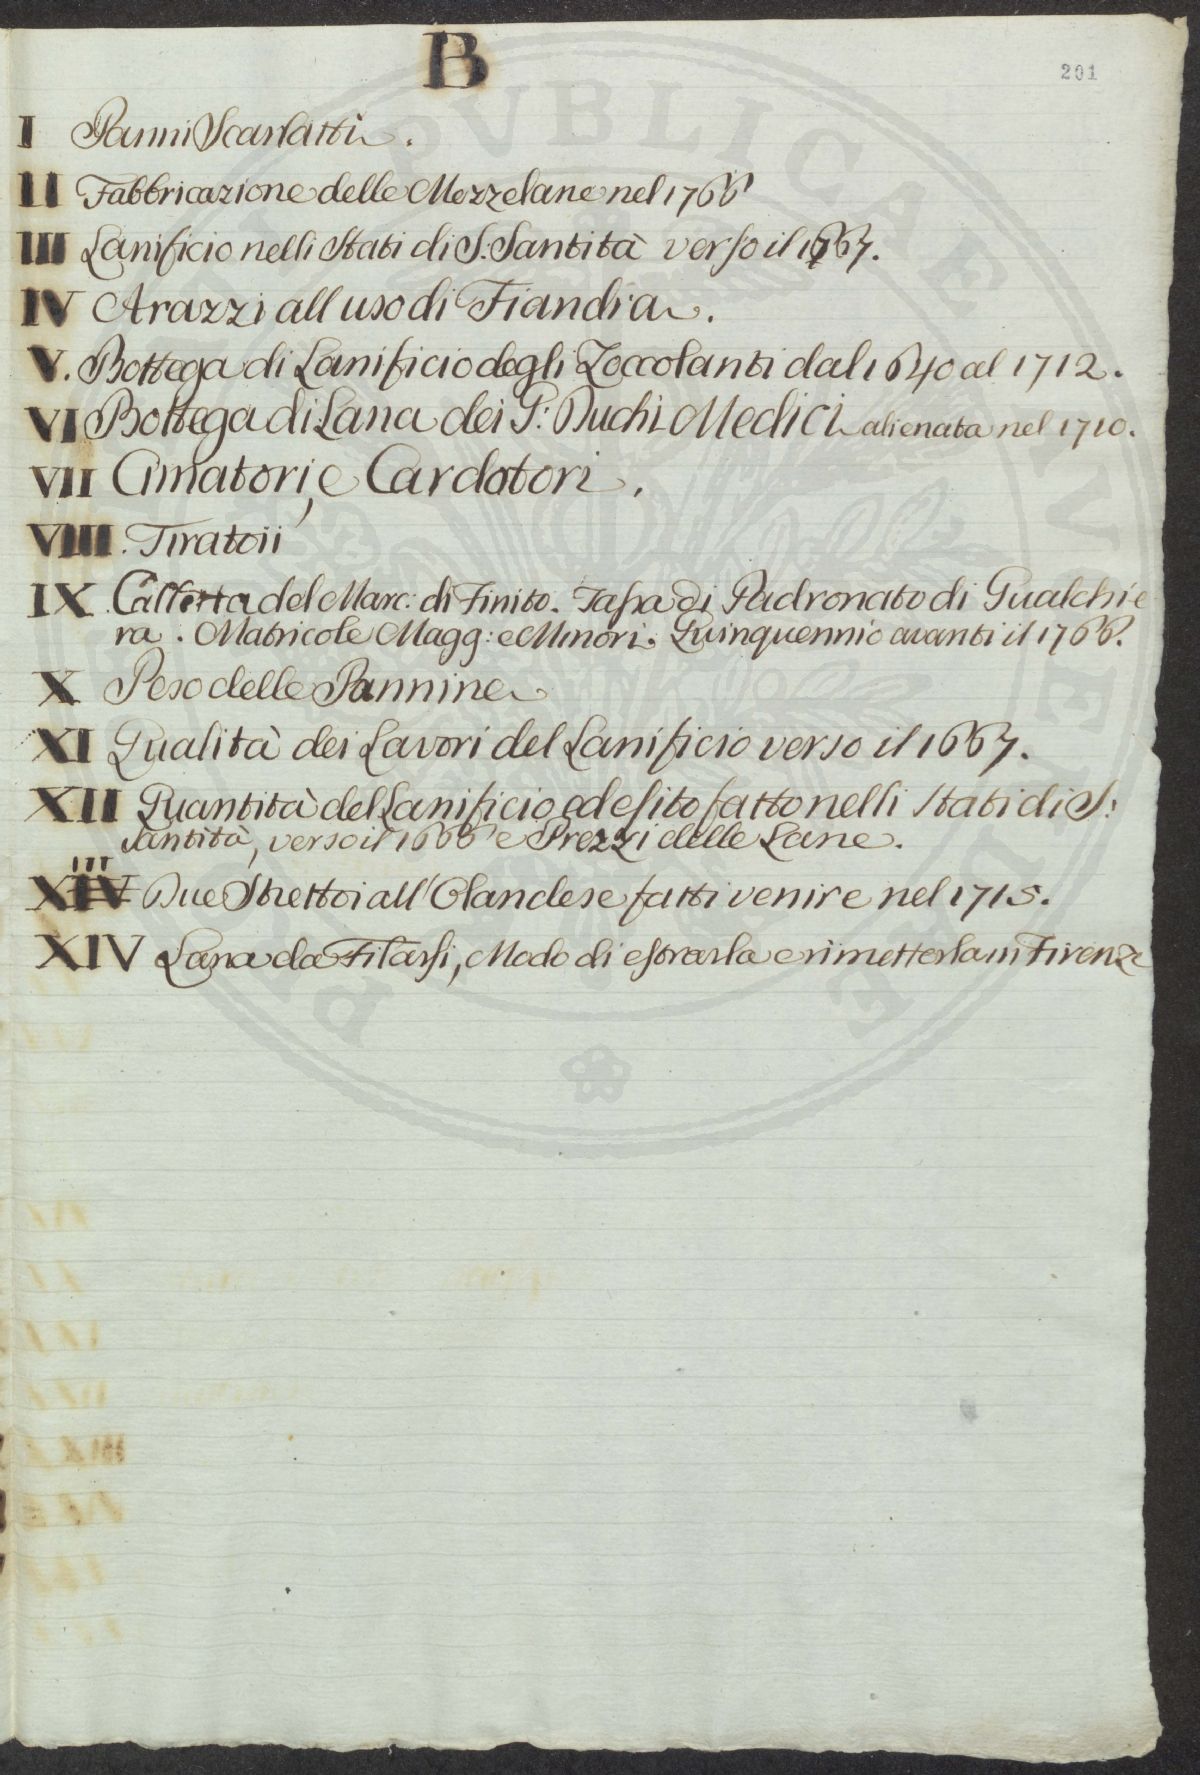 B
201
I Panni Scarlatti.
II Fabbricazione delle Mezzelane nel 1766
III Lanificio nelli Stati di S. Santità verso il 1667.
IV Arazzi all uso di Fiandra.
V. Bottega di Lanificio degli Zoccolanti dal 1640 al 1712.
VI Bottega di Lana dei G: Duchi Medici alienata nel 1710.
VII Cimatori, e Cardatori.
VIII. Tiratoii
IX del Marc: di Finito. Tassa di Padronato di Gualchie
ra. Matricole Magg: e Minori. Quinquennio avanti il 1766.
X Peso delle Pannine
XI Qualità dei Lavori del Lanificio verso il 1667.
XII Quantità del Lanificio, ed esito fatto nelli Stati di S:
Santità, verso il 1666 e Prezzi delle Lane.
XIII Due Strettoi all'Olandese fatti venire nel 1715.
XIV Lana da Filarsi, Modo di estrarla e rimetterla in Firenze